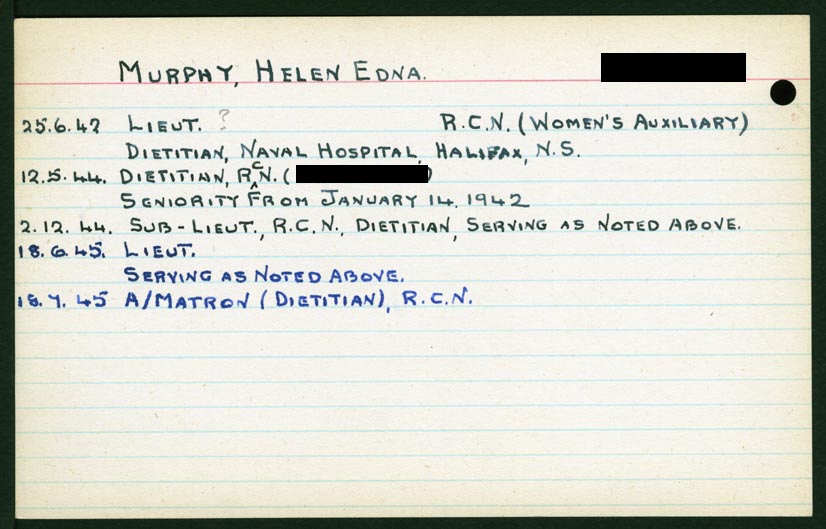 MURPHY, HELEN EDNA.
25.6.42 LIEUT. ? R.C.N. (WOMEN'S AUXILIARY)
DIETITIAN, NAVAL HOSPITAL, HALIFAX, N.S.
12.5.44. DIETITIAN, RCN. ( )
SENIORITY FROM JANUARY 14, 1942
2.12.44. SUB-LIEUT., R.C.N., DIETITIAN, SERVING AS NOTED ABOVE.
18.6.45. LIEUT.
SERVING AS NOTED ABOVE.
18.7.45 A/MATRON (DIETITIAN), R.C.N.